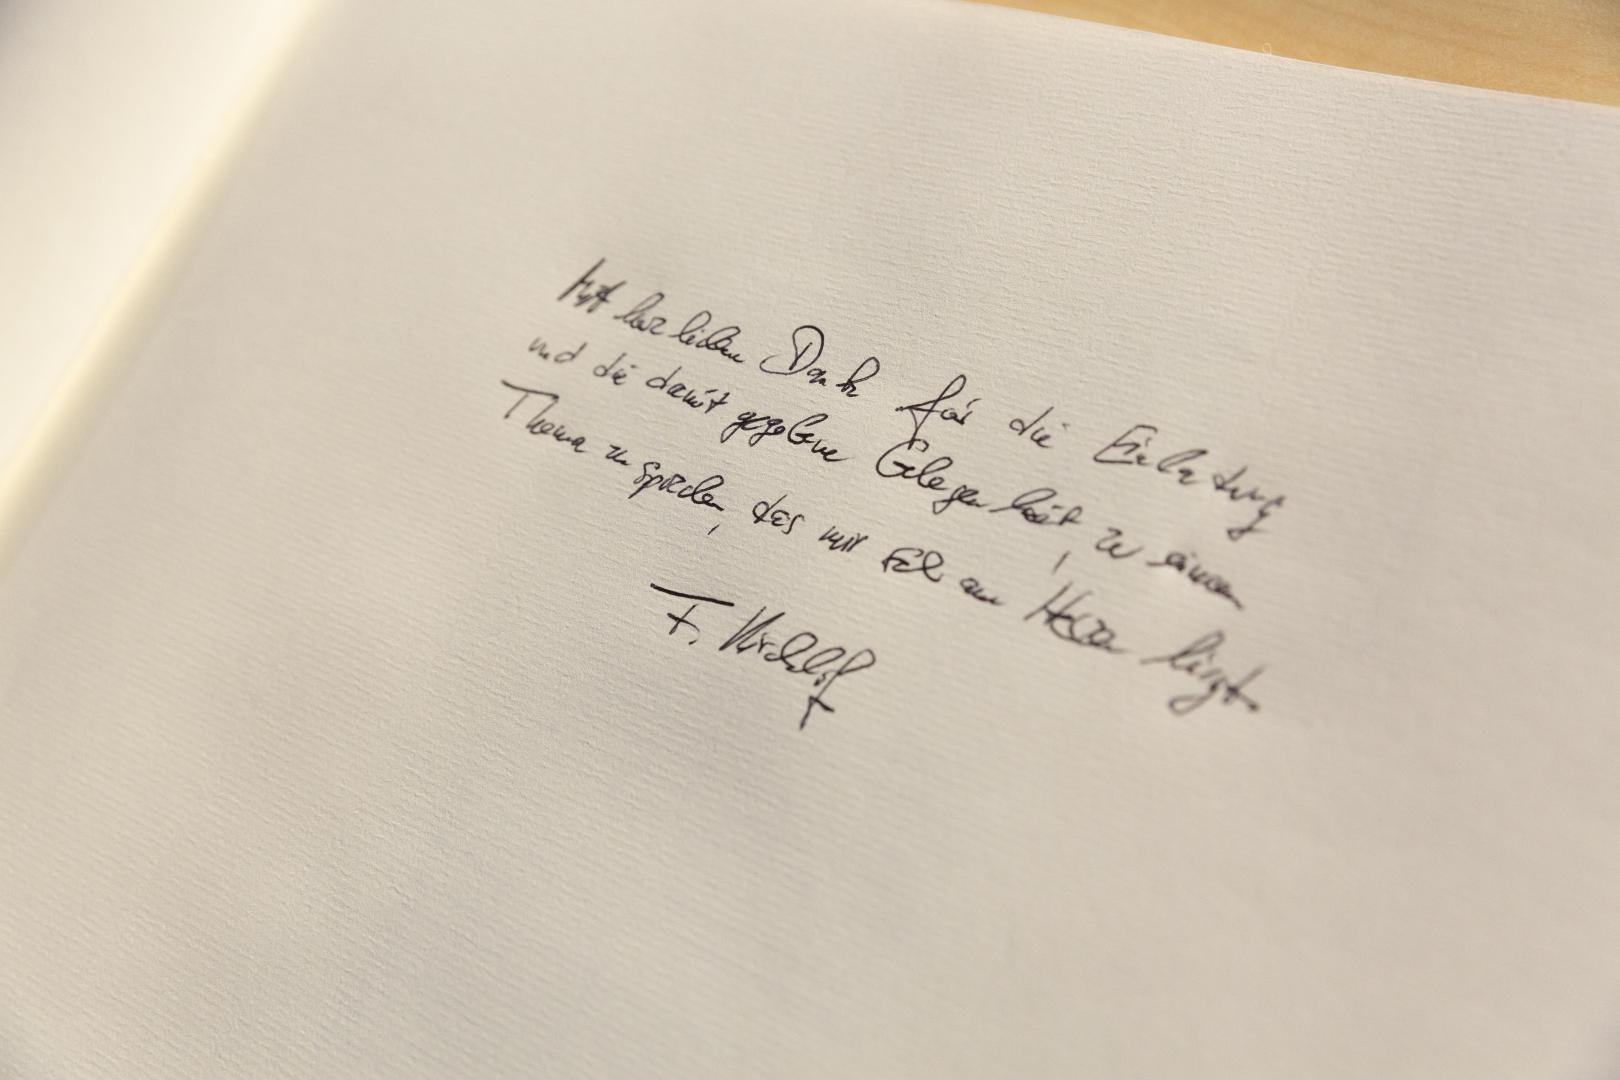 Mit herzlichem Dank für die Einladung
und die damit gegebene Gelegenheit, zu einem
Thema zu sprechen, das mir sehr am Herzen liegt.
F. Kirchhof